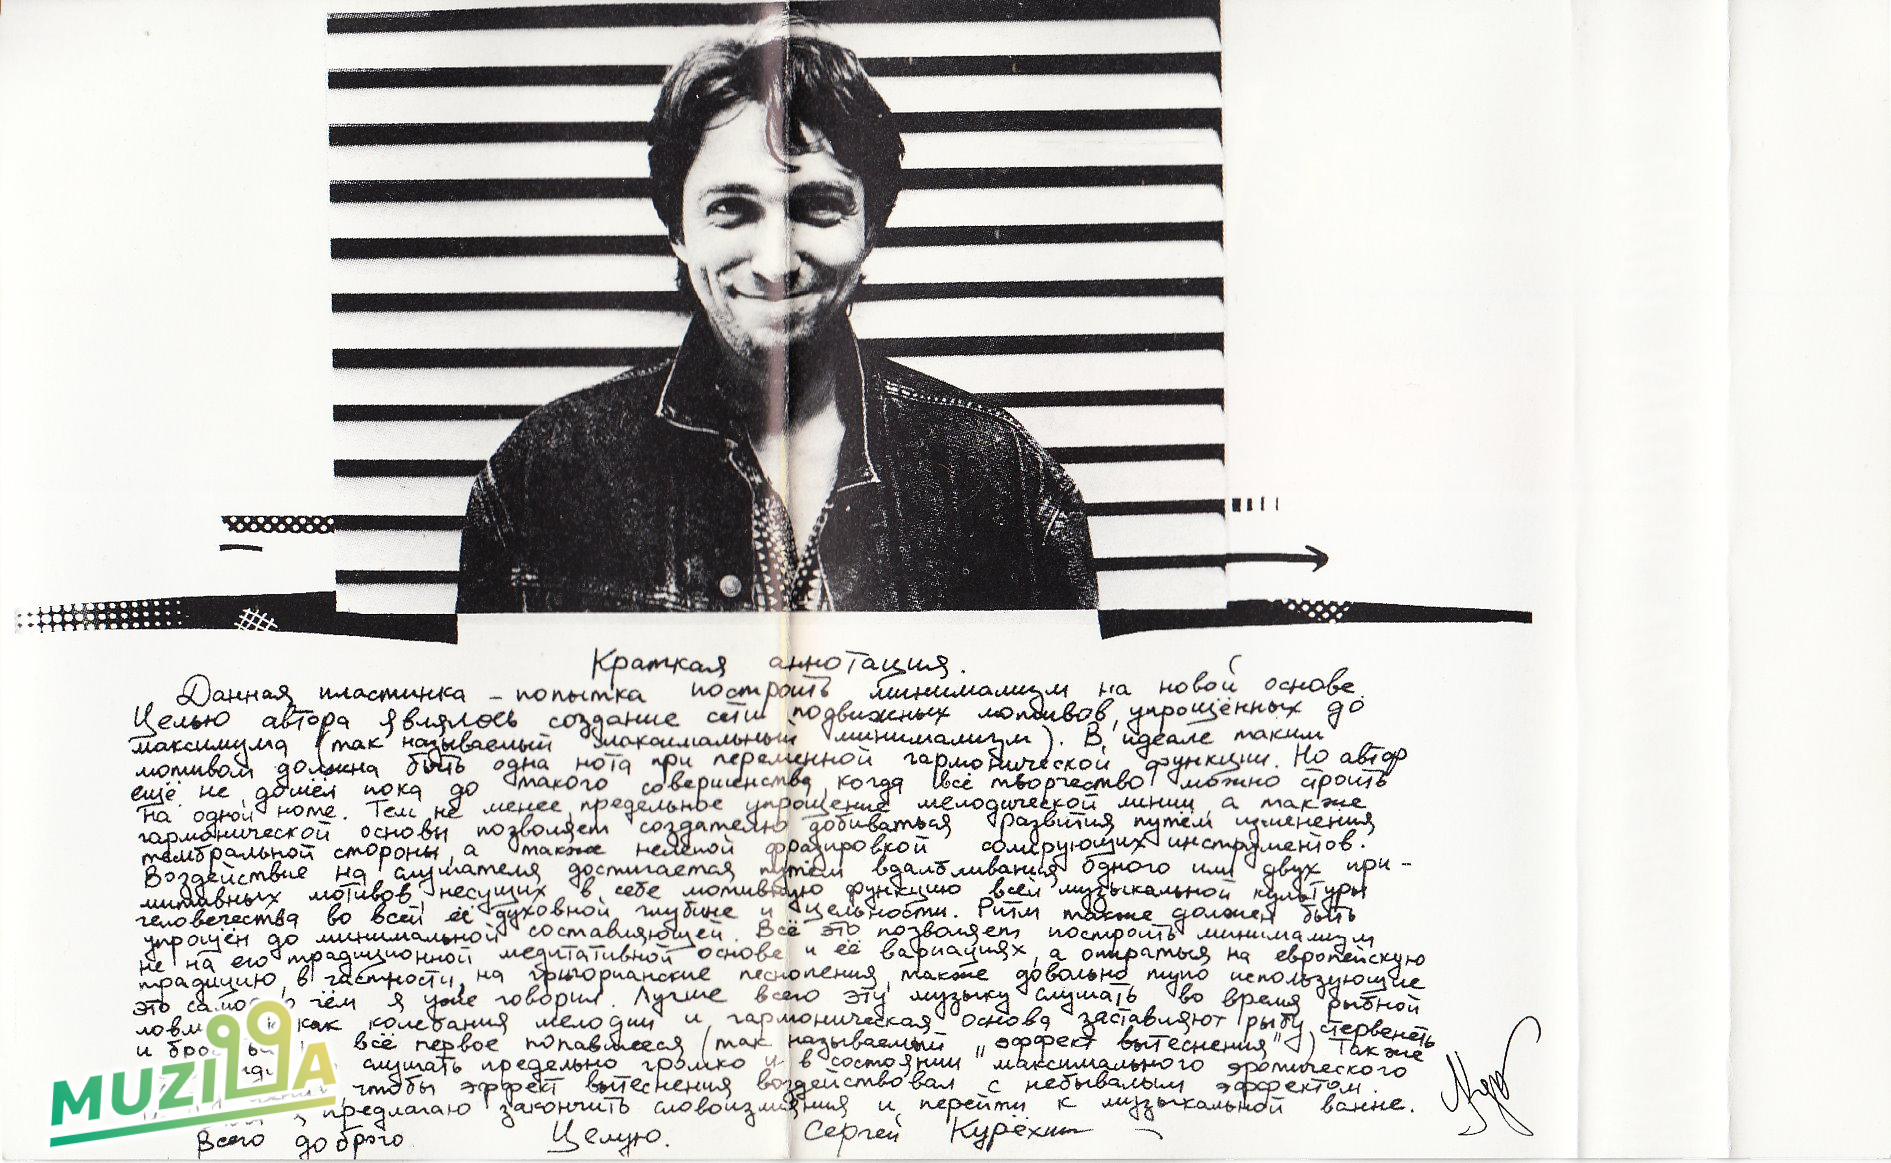 Краткая аннотация.
Данная пластинка – попытка построить минимализм на новой основе.
Целью автора являлось создание сети подвижных мотивов, упрощённых до
максимума (так называемый максимальный минимализм). В идеале таким
мотивом должна быть одна нота при переменной гармонической функции. Но автор
ещё не дошёл пока до такого совершенства, когда всё творчество можно строить
на одной ноте. Тем не менее, предельное упрощение мелодической линии, а также
гармонической основы позволяет создателю добиваться развития путём изменения
тембральной стороны, а также нелепой фразировкой солирующих инструментов.
Воздействие на слушателя достигается путём вдалбливания одного или двух при-
митивных мотивов, несущих в себе мотивную функцию всей музыкальной культуры
человечества во всей её духовной глубине и цельности. Ритм также должен быть
упрощён до минимальной составляющей. Всё это позволяет построить минимализм
не на его традиционной медитативной основе и её вариациях, а опираться на европейскую
традицию, в частности, на григорианские песнопения, также довольно тупо использующие
это самое чём я уже говорил. Лучше всего эту музыку слушать во время рыбной
как колебания мелодии и гармоническая основа заставляют рыбу стервенеть
и всё первое попавшееся (так называемый „эффект вытеснения"). Также
слушать предельно громко и в состоянии максимального эротического
чтобы эффект вытеснения воздействовал с небывалым эффектом.
предлагаю закончить словоизлияния и перейти к музыкальной ванне.
Всего доброго Целую. Сергей Курёхин
MUZILLA